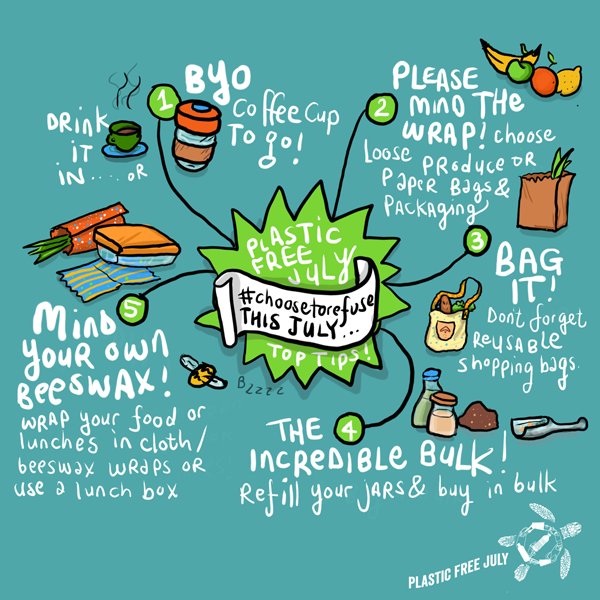 PLASTIC
FREE
JULY
#choosetorefuse
THIS JULY...
TOP TIPS!
1
BYO
Coffee Cup
To go!
DRINK
IT
IN.... OR
2
PLEASE
MIND THE
WRAP! choose
Loose PRODUCE OR
PAPER BAGS &
PACKAGING
3
BAG
IT!
Dont forget
REUSABLE
shopping bags.
4
THE
INCREDIBLE BULK!
Refill your JARS & buy in bulk
5
MIND
YOUR OWN
BEESWAX!
WRAP your food or
lunches in cloth/
beeswax wraps or
use a lunch box
Bzzzz
PLASTIC FREE JULY